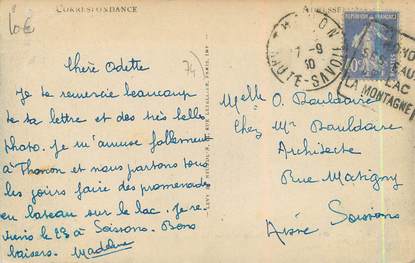 CORRESPONDANCE
10€
74
Chère Odette
Je te remercie beaucoup
de ta lettre et des très belles
photo. Je m'amuse follement
à Thonon et nous partons tous
les jours faire des promenades
en bateau sur le lac. Je re
viens le 23 à Soissons. Bons
baisers. Madeleine
THONON
7-9
30
HTE-SAVOIE
LAC
LA MONTAGNE
Melle O. Bauldaire
Chez Mr Bauldaire
Architecte
Rue Matigny
Soissons
Aisne